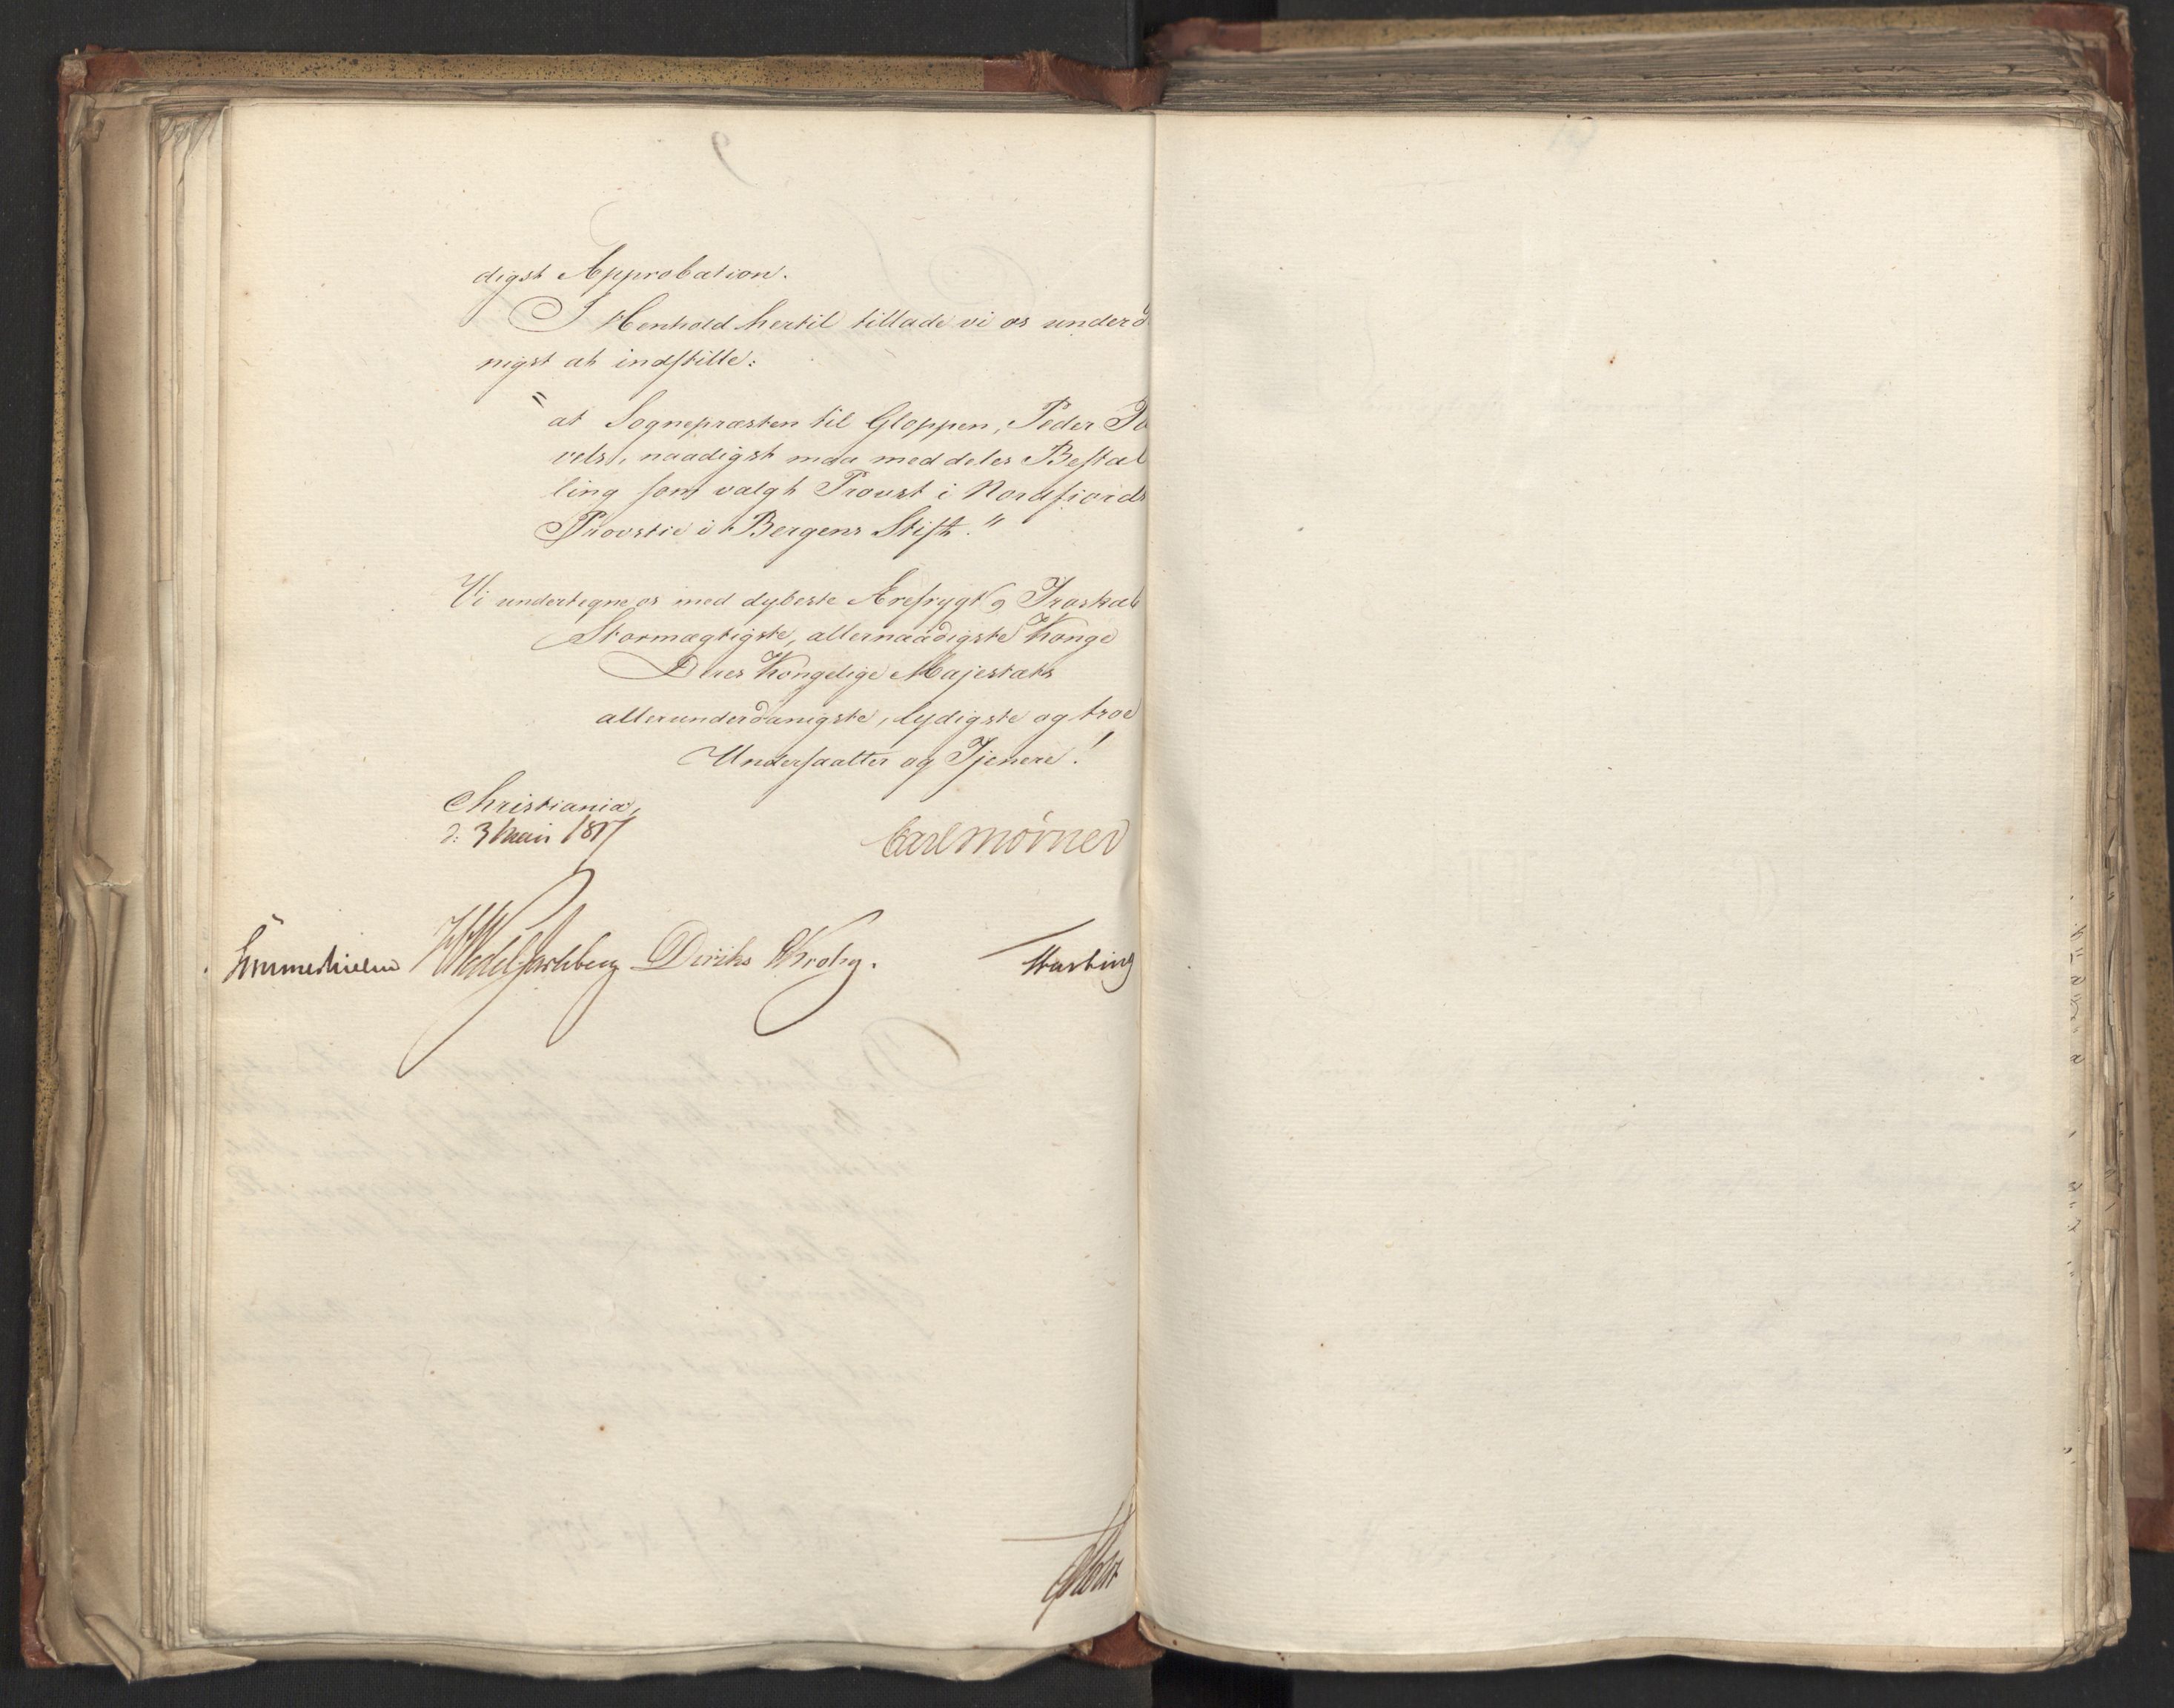 digst Approbation.
I Henhold hertil tillade vi os underd
nigst at indstille:
"at Sognepræsten til Gloppen, Peder Pa
vels, naadigst maa meddeles Bestal
ling som valgt Provst i Nordfiords
Provstie i Bergens Stift."
Vi undertegne os med dybeste Ærefrygt og Troskab
Stormægtigste, allernaadigste Konge
Deres Kongelige Majestæts
allerunderdanigste, lydigste og troe
Undersaatter og Tjenere!
Christiania,
d: 3 Maii 1817
Carl Mörner
Sommerhielm Wedel Jarlsberg Diriks Krohg.
Hasting
Holst